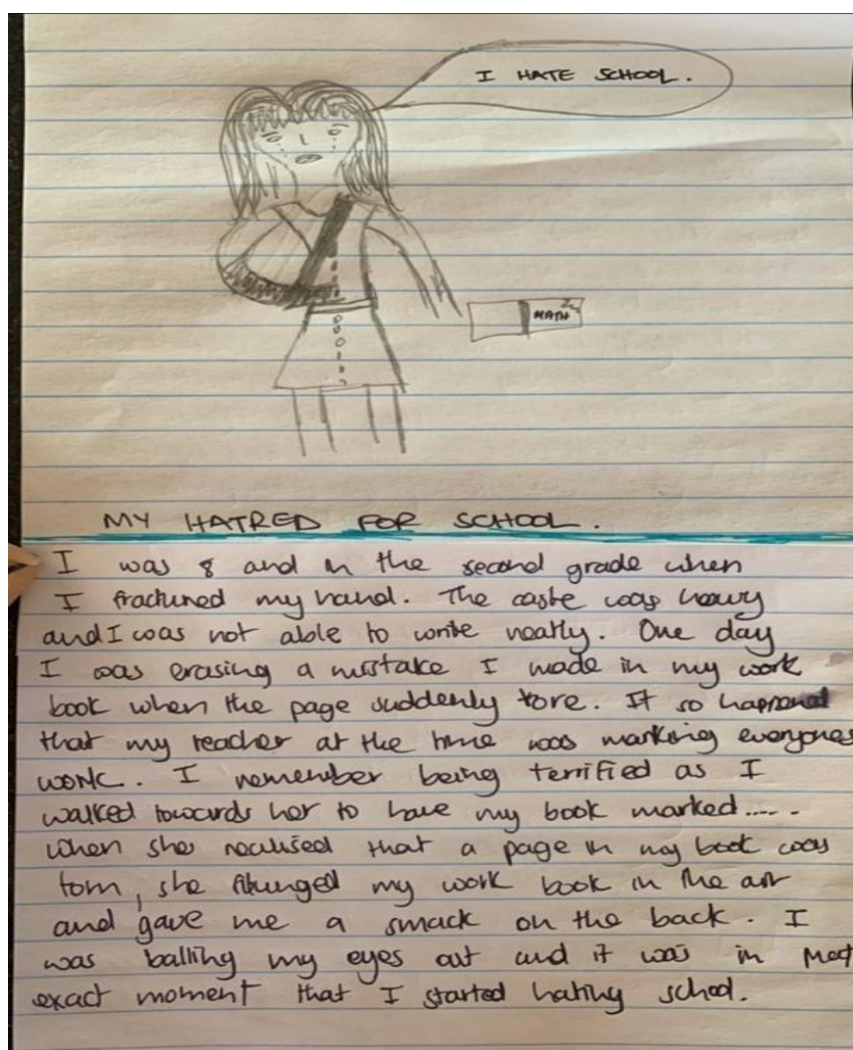 I HATE SCHOOL.
MATH
MY HATRED FOR SCHOOL.
I was 8 and in the second grade when
I fractured my hand. The caste was heavy
and I was not able to write neatly. One day
I was erasing a mistake I made in my work
book when the page suddenly tore. It so happened
that my teacher at the time was marking everyones
work. I remember being terrified as I
walked towards her to have my book marked.....
when she realised that a page in my book was
torn, she flunged my work book in the air
and gave me a smack on the back. I
was balling my eyes out and it was in that
exact moment that I started hating school.